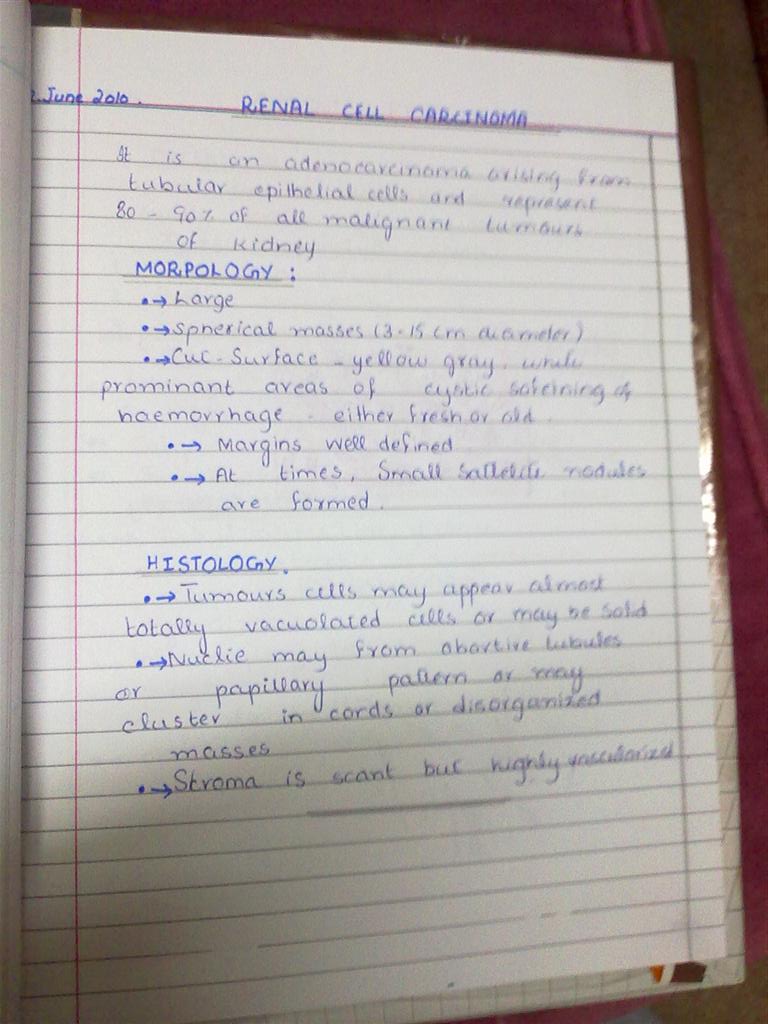 June 2010.
RENAL CELL CARCINOMA
It is an adenocarcinoma arising from
tubular epithelial cells and represent
80 - 90% of all malignant tumours
of kidney
MORPOLOGY :
•→ Large
•→ Spherical masses (3-15 cm diameter)
•→ Cut-Surface - yellow gray, while
prominant areas of cystic softening of
haemorrhage - either fresh or old.
•→ Margins well defined
•→ At times, Small nodules
are formed.
HISTOLOGY.
•→ Tumours cells may appear almost
totally vacuolated cells or may be solid
•→ Nuclie may from abortive tubules
or papillary pattern or may
cluster in cords or disorganized
masses
•→ Stroma is scant but highly vascularized